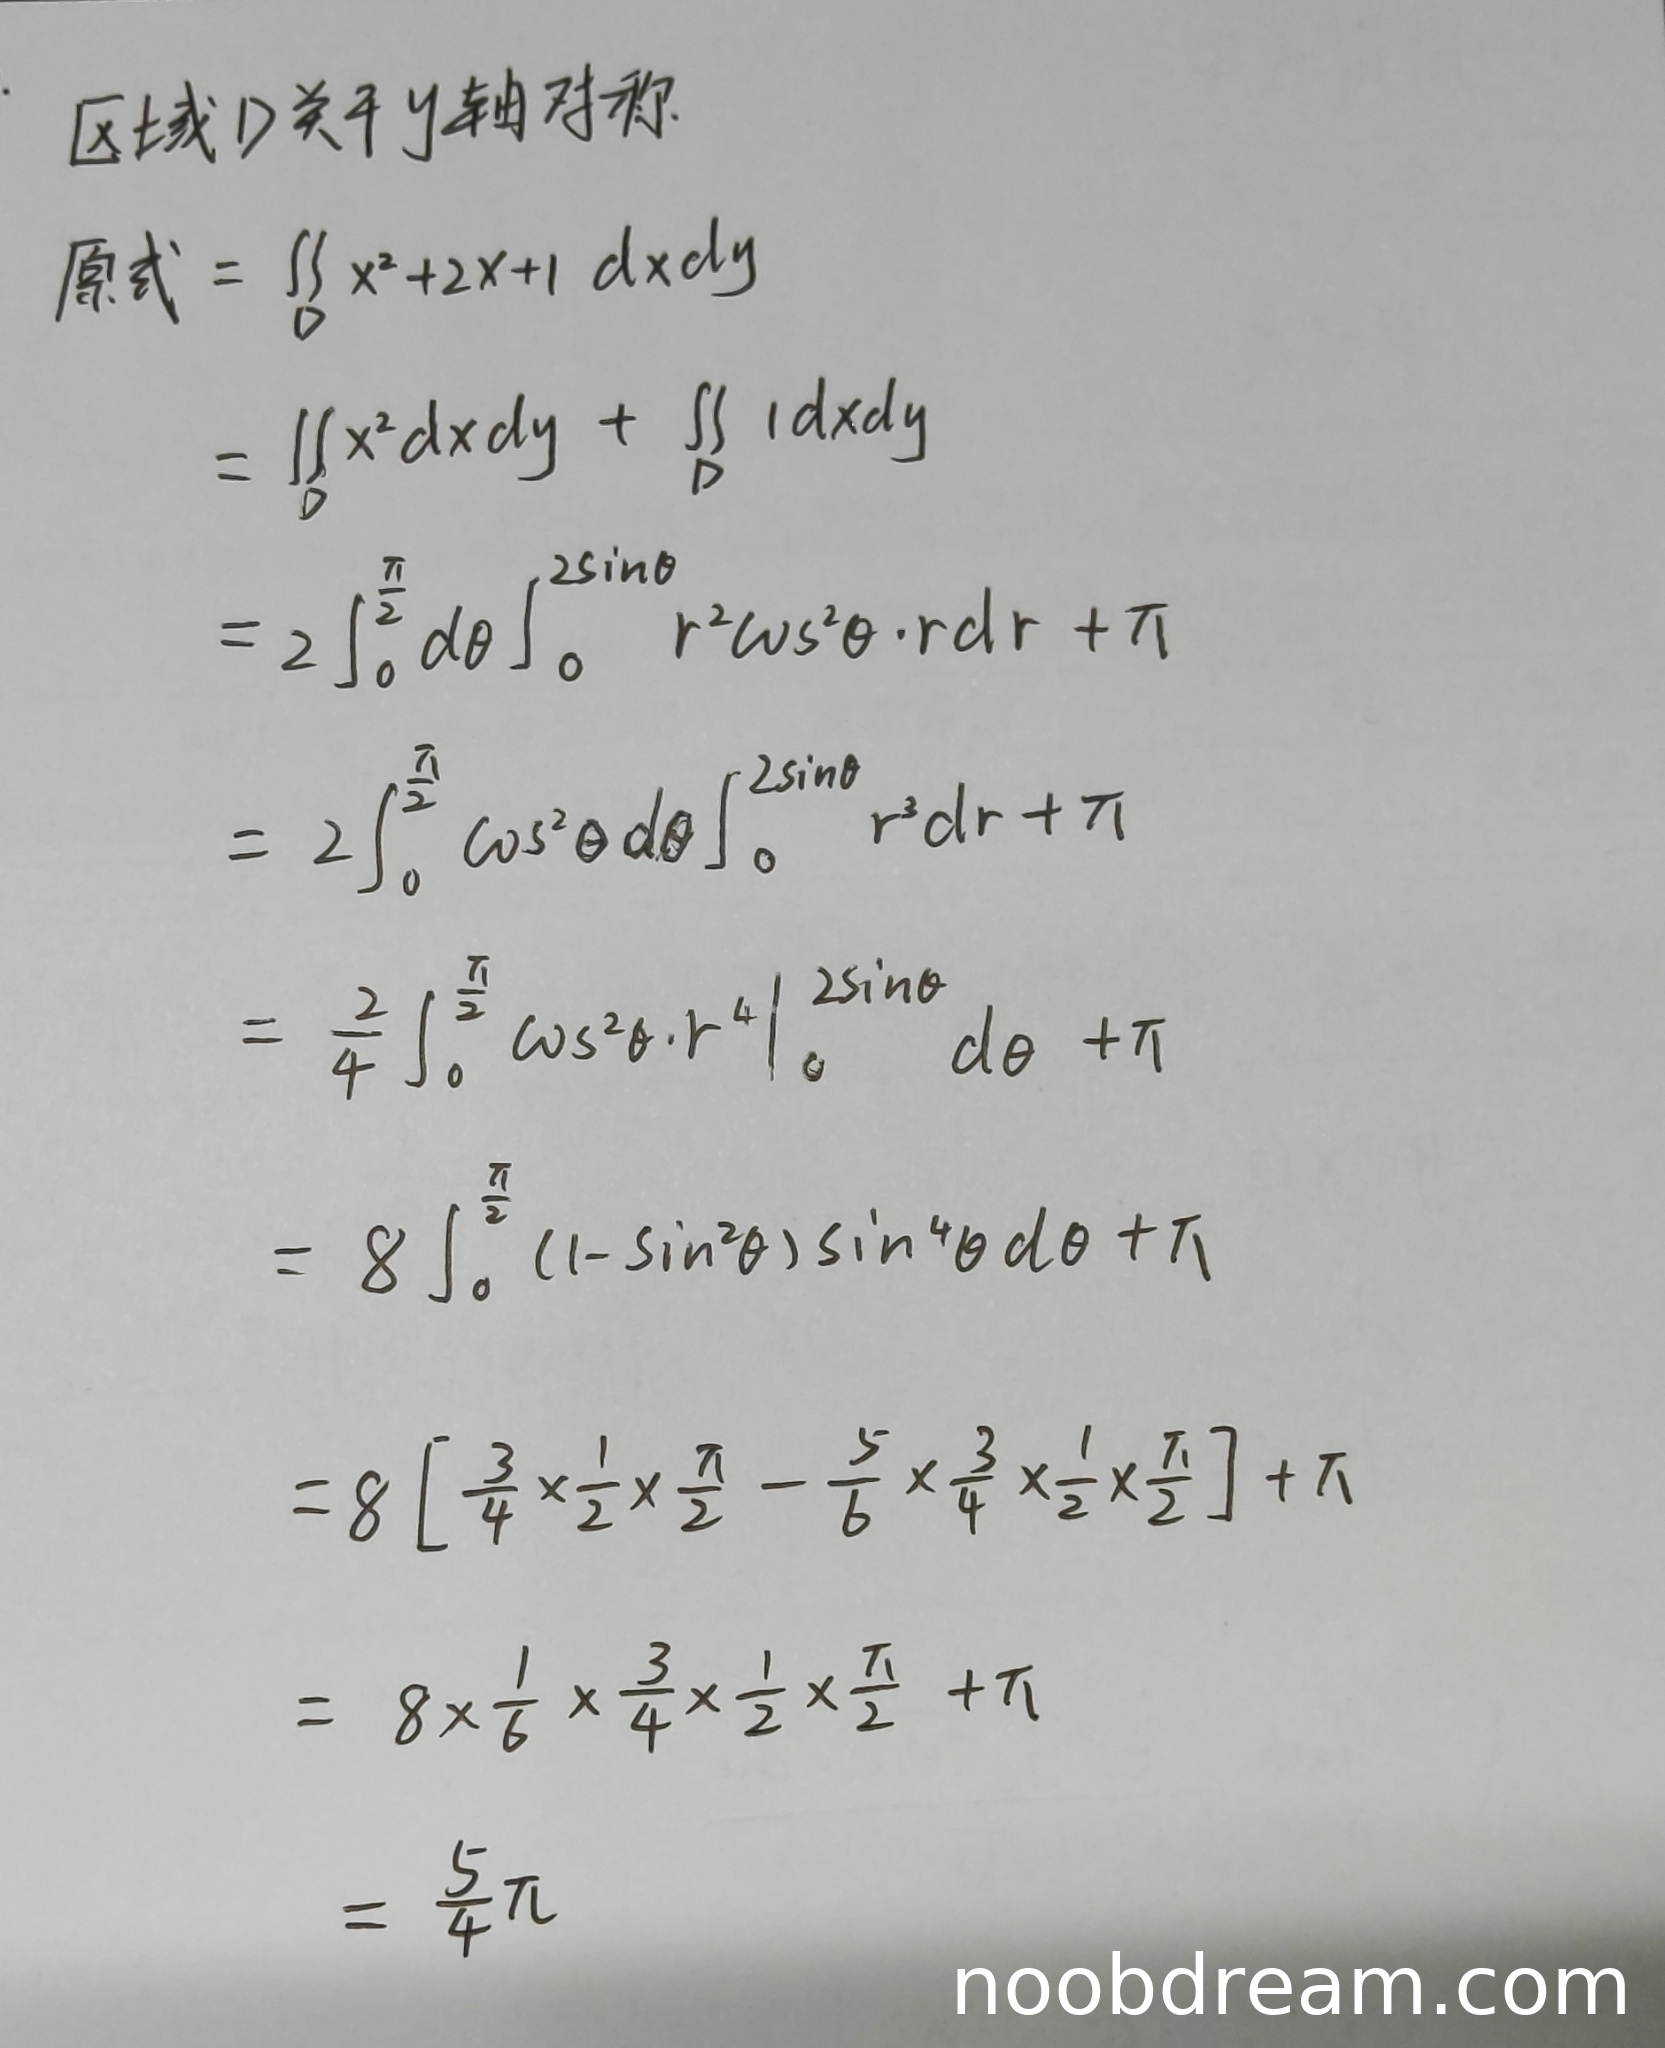 区域D关于y轴对称.
原式 = ∬_D x²+2x+1 dxdy
= ∬_D x²dxdy + ∬_D 1dxdy
= 2∫_0^{π/2} dθ ∫_0^{2sinθ} r²cos²θ·rdr + π
= 2∫_0^{π/2} cos²θ dθ ∫_0^{2sinθ} r³dr + π
= 2/4 ∫_0^{π/2} cos²θ·r⁴|_0^{2sinθ} dθ + π
= 8∫_0^{π/2} (1-sin²θ)sin⁴θdθ + π
= 8[3/4 × 1/2 × π/2 - 5/6 × 3/4 × 1/2 × π/2] + π
= 8 × 1/6 × 3/4 × 1/2 × π/2 + π
= 5/4 π
noobdream.com